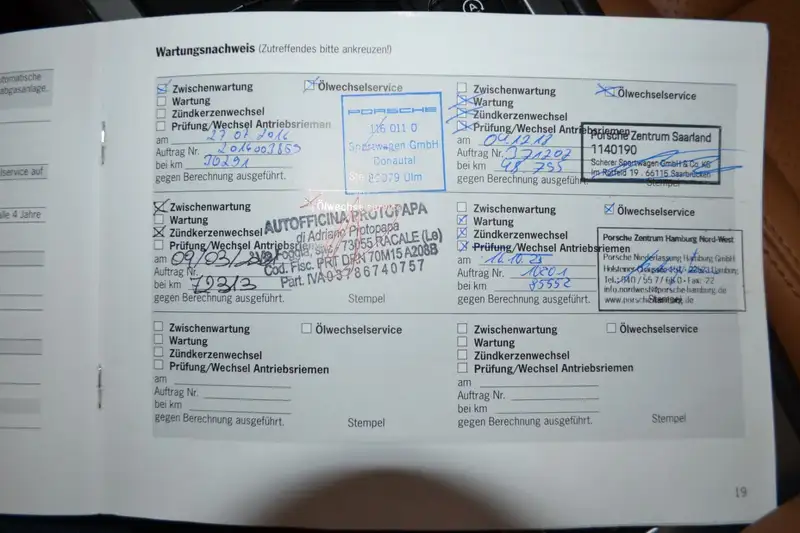 Wartungsnachweis (Zutreffendes bitte ankreuzen!)
Zwischenwartung
Ölwechselservice
Wartung
Zündkerzenwechsel
Prüfung/Wechsel Antriebsriemen
am 27.07.2016
Auftrag Nr. 2016003859
bei km 30291
gegen Berechnung ausgeführt.
PORSCHE
116 011 0
Sportwagen GmbH
Donautal
89079 Ulm
Zwischenwartung
Ölwechselservice
Wartung
Zündkerzenwechsel
Prüfung/Wechsel Antriebsriemen
am 04.12.18
Auftrag Nr. 371202
bei km 48.755
gegen Berechnung ausgeführt.
Stempel
Porsche Zentrum Saarland
1140190
Scherer Sportwagen GmbH & Co. KG
Im Rotfeld 19 . 66115 Saarbrücken
Zwischenwartung
Ölwechselservice
Wartung
Zündkerzenwechsel
Prüfung/Wechsel Antriebsriemen
am 09/03/
Auftrag Nr.
bei km 72313
gegen Berechnung ausgeführt.
Stempel
AUTOFFICINA PROTOPAPA
di Adriano Protopapa
Via Foggia, snc / 73055 RACALE (Le)
Cod. Fisc. PRT DRN 70M15 A208B
Part. IVA 03786740757
Zwischenwartung
Ölwechselservice
Wartung
Zündkerzenwechsel
Prüfung/Wechsel Antriebsriemen
am 16.10.23
Auftrag Nr. 10201
bei km 85552
gegen Berechnung ausgeführt.
Stempel
Porsche Zentrum Hamburg Nord-West
Porsche Niederlassung Hamburg GmbH
www.porsche-hamburg.de
Zwischenwartung
Ölwechselservice
Wartung
Zündkerzenwechsel
Prüfung/Wechsel Antriebsriemen
am
Auftrag Nr.
bei km
gegen Berechnung ausgeführt.
Stempel
Zwischenwartung
Ölwechselservice
Wartung
Zündkerzenwechsel
Prüfung/Wechsel Antriebsriemen
am
Auftrag Nr.
bei km
gegen Berechnung ausgeführt.
Stempel
19
tomatische
abgasanlage.
lservice auf
alle 4 Jahre